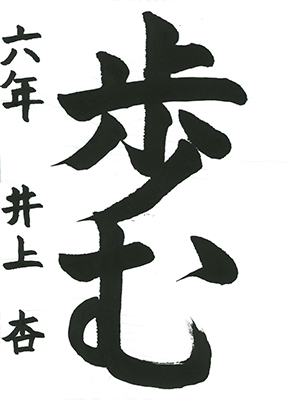 歩む
六年 井上 杏